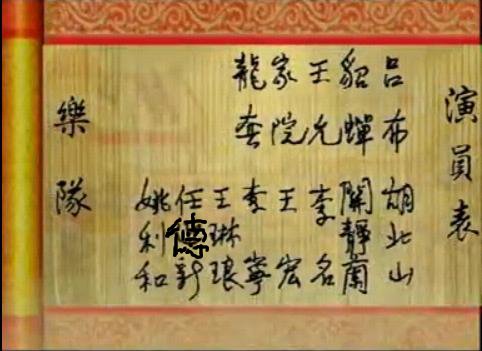 演員表
呂布 胡北山
貂蟬 關靜蘭
王允 李名
家院 王宏
龍套 李寧
王琳琅
任德新
姚利和
樂隊